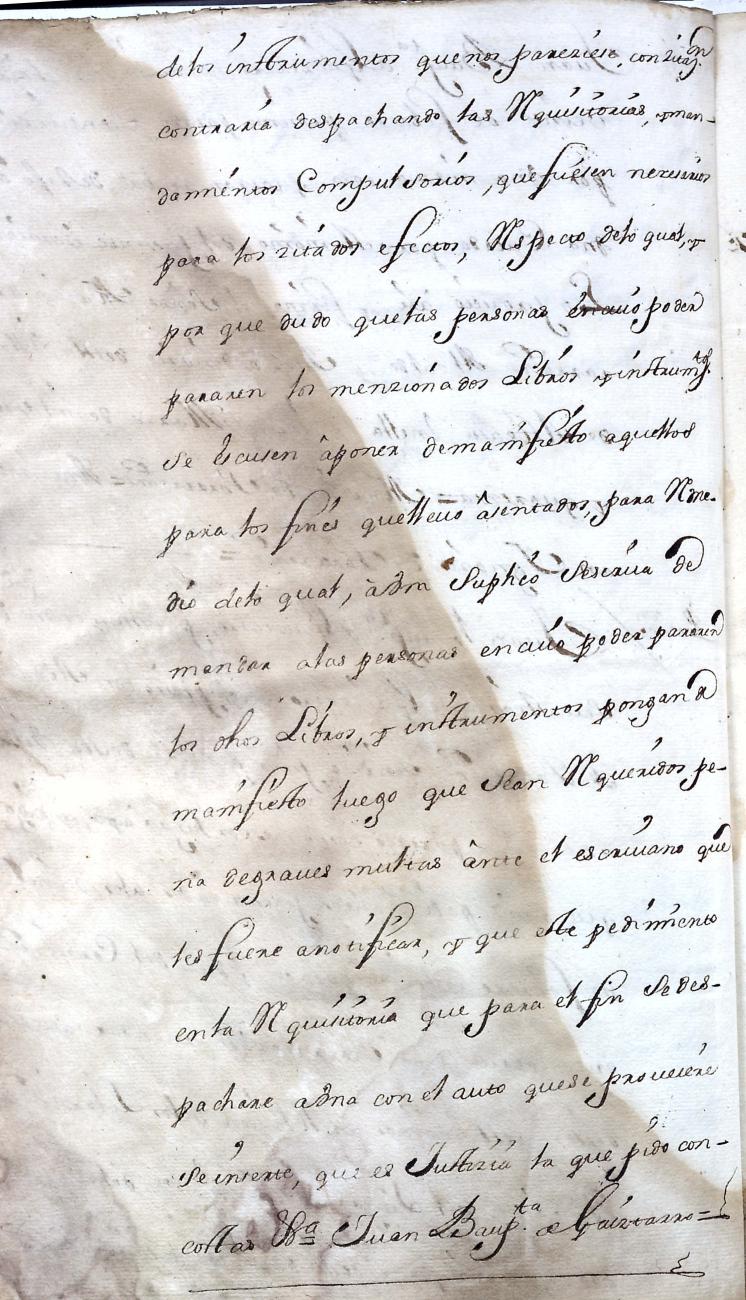 delos instrumentos que nos pareziere, con zitaz.on
contraria despachando las Rquisitorias, y man-
damientos Compulsorios, que fuesen nezesarios
para los zitados efectos, Rspecto delo qual, y
por que dudo que las personas en cuio poder
pararen los menzionados Libros y instrum.tos
se escusen à poner de manifiesto aquellos
para los fines que llevo âsentados, para Rme-
dio delo qual, à Vm Suplico Sesirva de
mandar alas personas en cuio poder pararen
los dhos Libros, y instrumentos pongan d
manifiesto luego que Sean Rqueridos pe-
na de graves multas ânte el escrivano que
les fuere anotificar, y que este pedimiento
en la Rquisitoria que para el fin Se des-
pachare a Vm con el auto quese proveiere
Se inserte, que es Justizia la que pido con
costas Juan Baup.ta